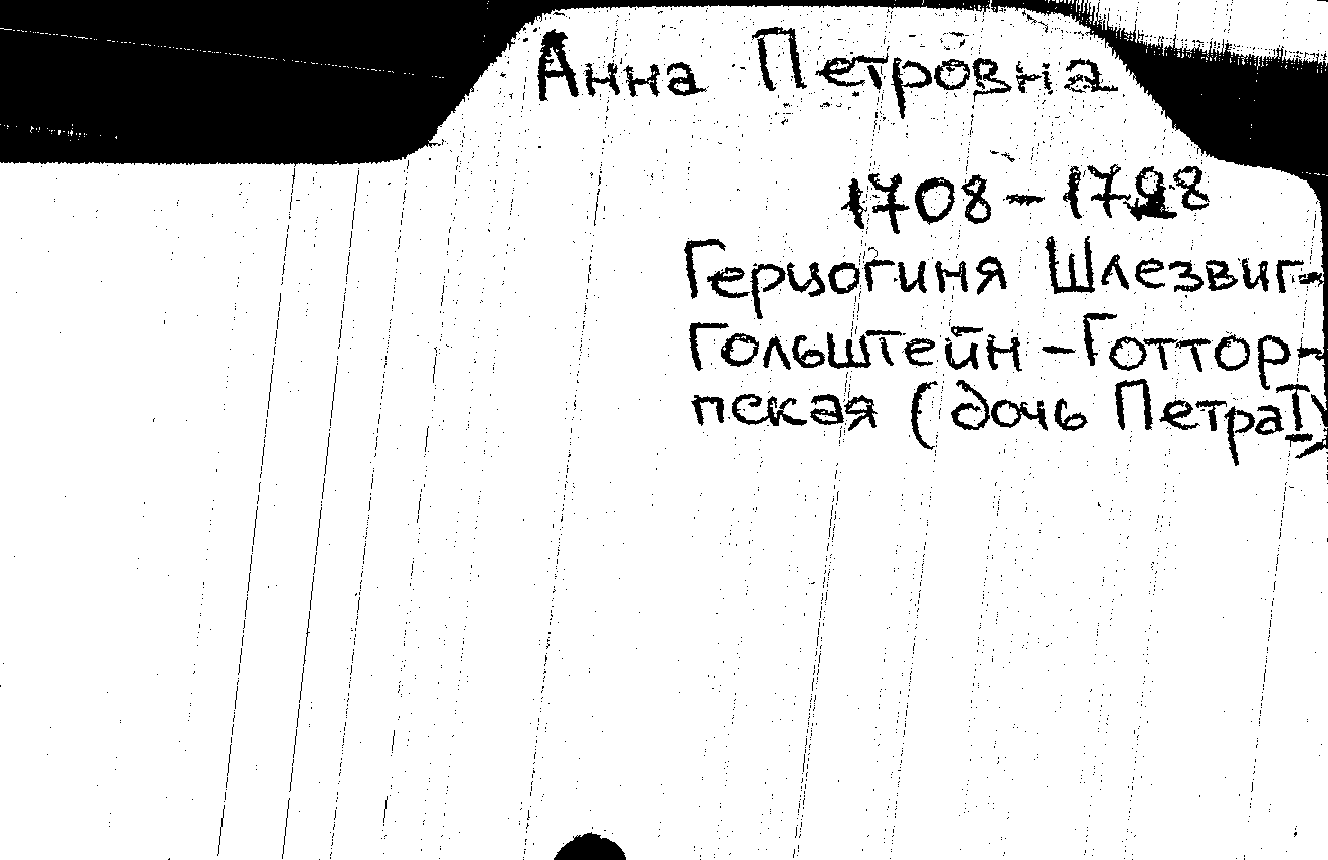 Анна Петровна
1708-1728
Герцогиня Шлезвиг-
Гольштейн-Готтор-
пская (дочь Петра I)